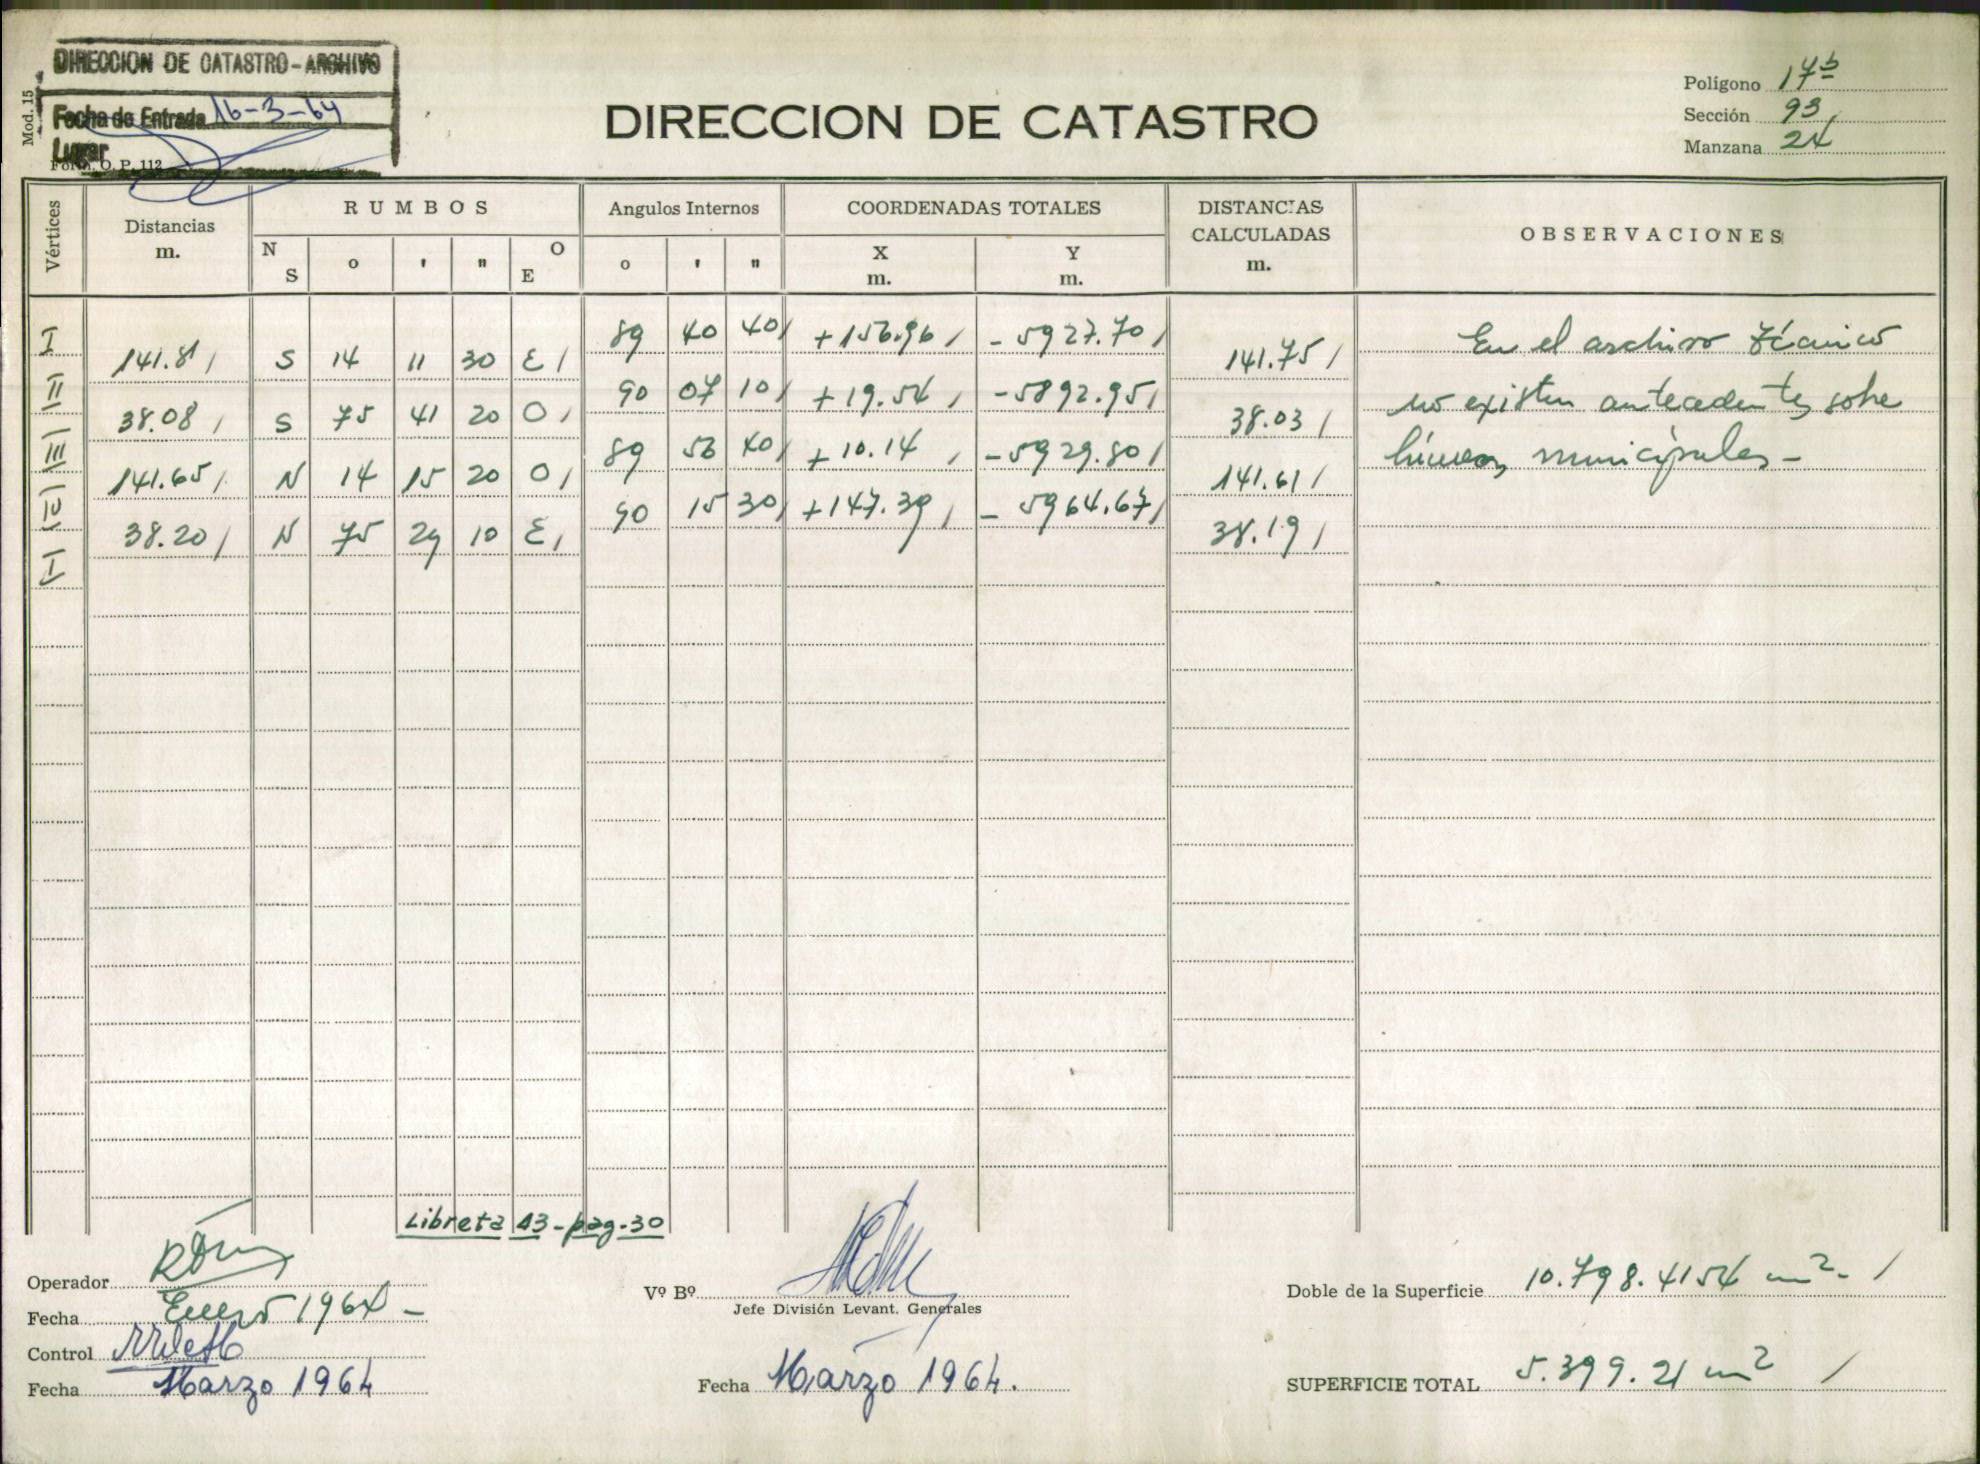 DIRECCION DE CATASTRO - ARCHIVO
Fecha de Entrada 16-3-64
Lugar
Mod. 15
Form. O. P. 112
DIRECCION DE CATASTRO
Polígono 17b
Sección 93
Manzana 24
Vértices Distancias m. RUMBOS Angulos Internos COORDENADAS TOTALES DISTANCIAS CALCULADAS m. OBSERVACIONES
N S o ' " O E o ' " X m. Y m.
I 89 40 40 +156.96 -5927.70
141.81 S 14 11 30 E 141.75
II 90 07 10 +19.54 -5892.95
38.08 S 75 41 20 O 38.03
III 89 56 40 +10.14 -5929.80
141.65 N 14 15 20 O 141.61
IV 90 15 30 +147.39 -5964.67
38.20 N 75 29 10 E 38.19
I
En el archivo técnico
no existen antecedentes sobre
líneas municipales -
Libreta 13 - pag. 30
Operador
Fecha Enero 1964 -
Control
Fecha Marzo 1964
Vº Bº
Jefe División Levant. Generales
Fecha Marzo 1964.
Doble de la Superficie 10.798.4154 m2.
SUPERFICIE TOTAL 5.399.21 m2